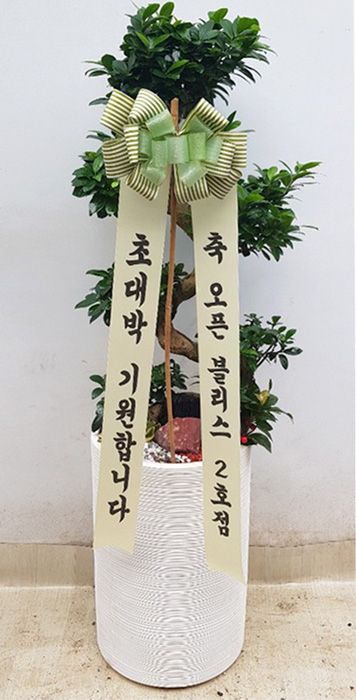 초대박 기원합니다
축 오픈 블리스 2호점